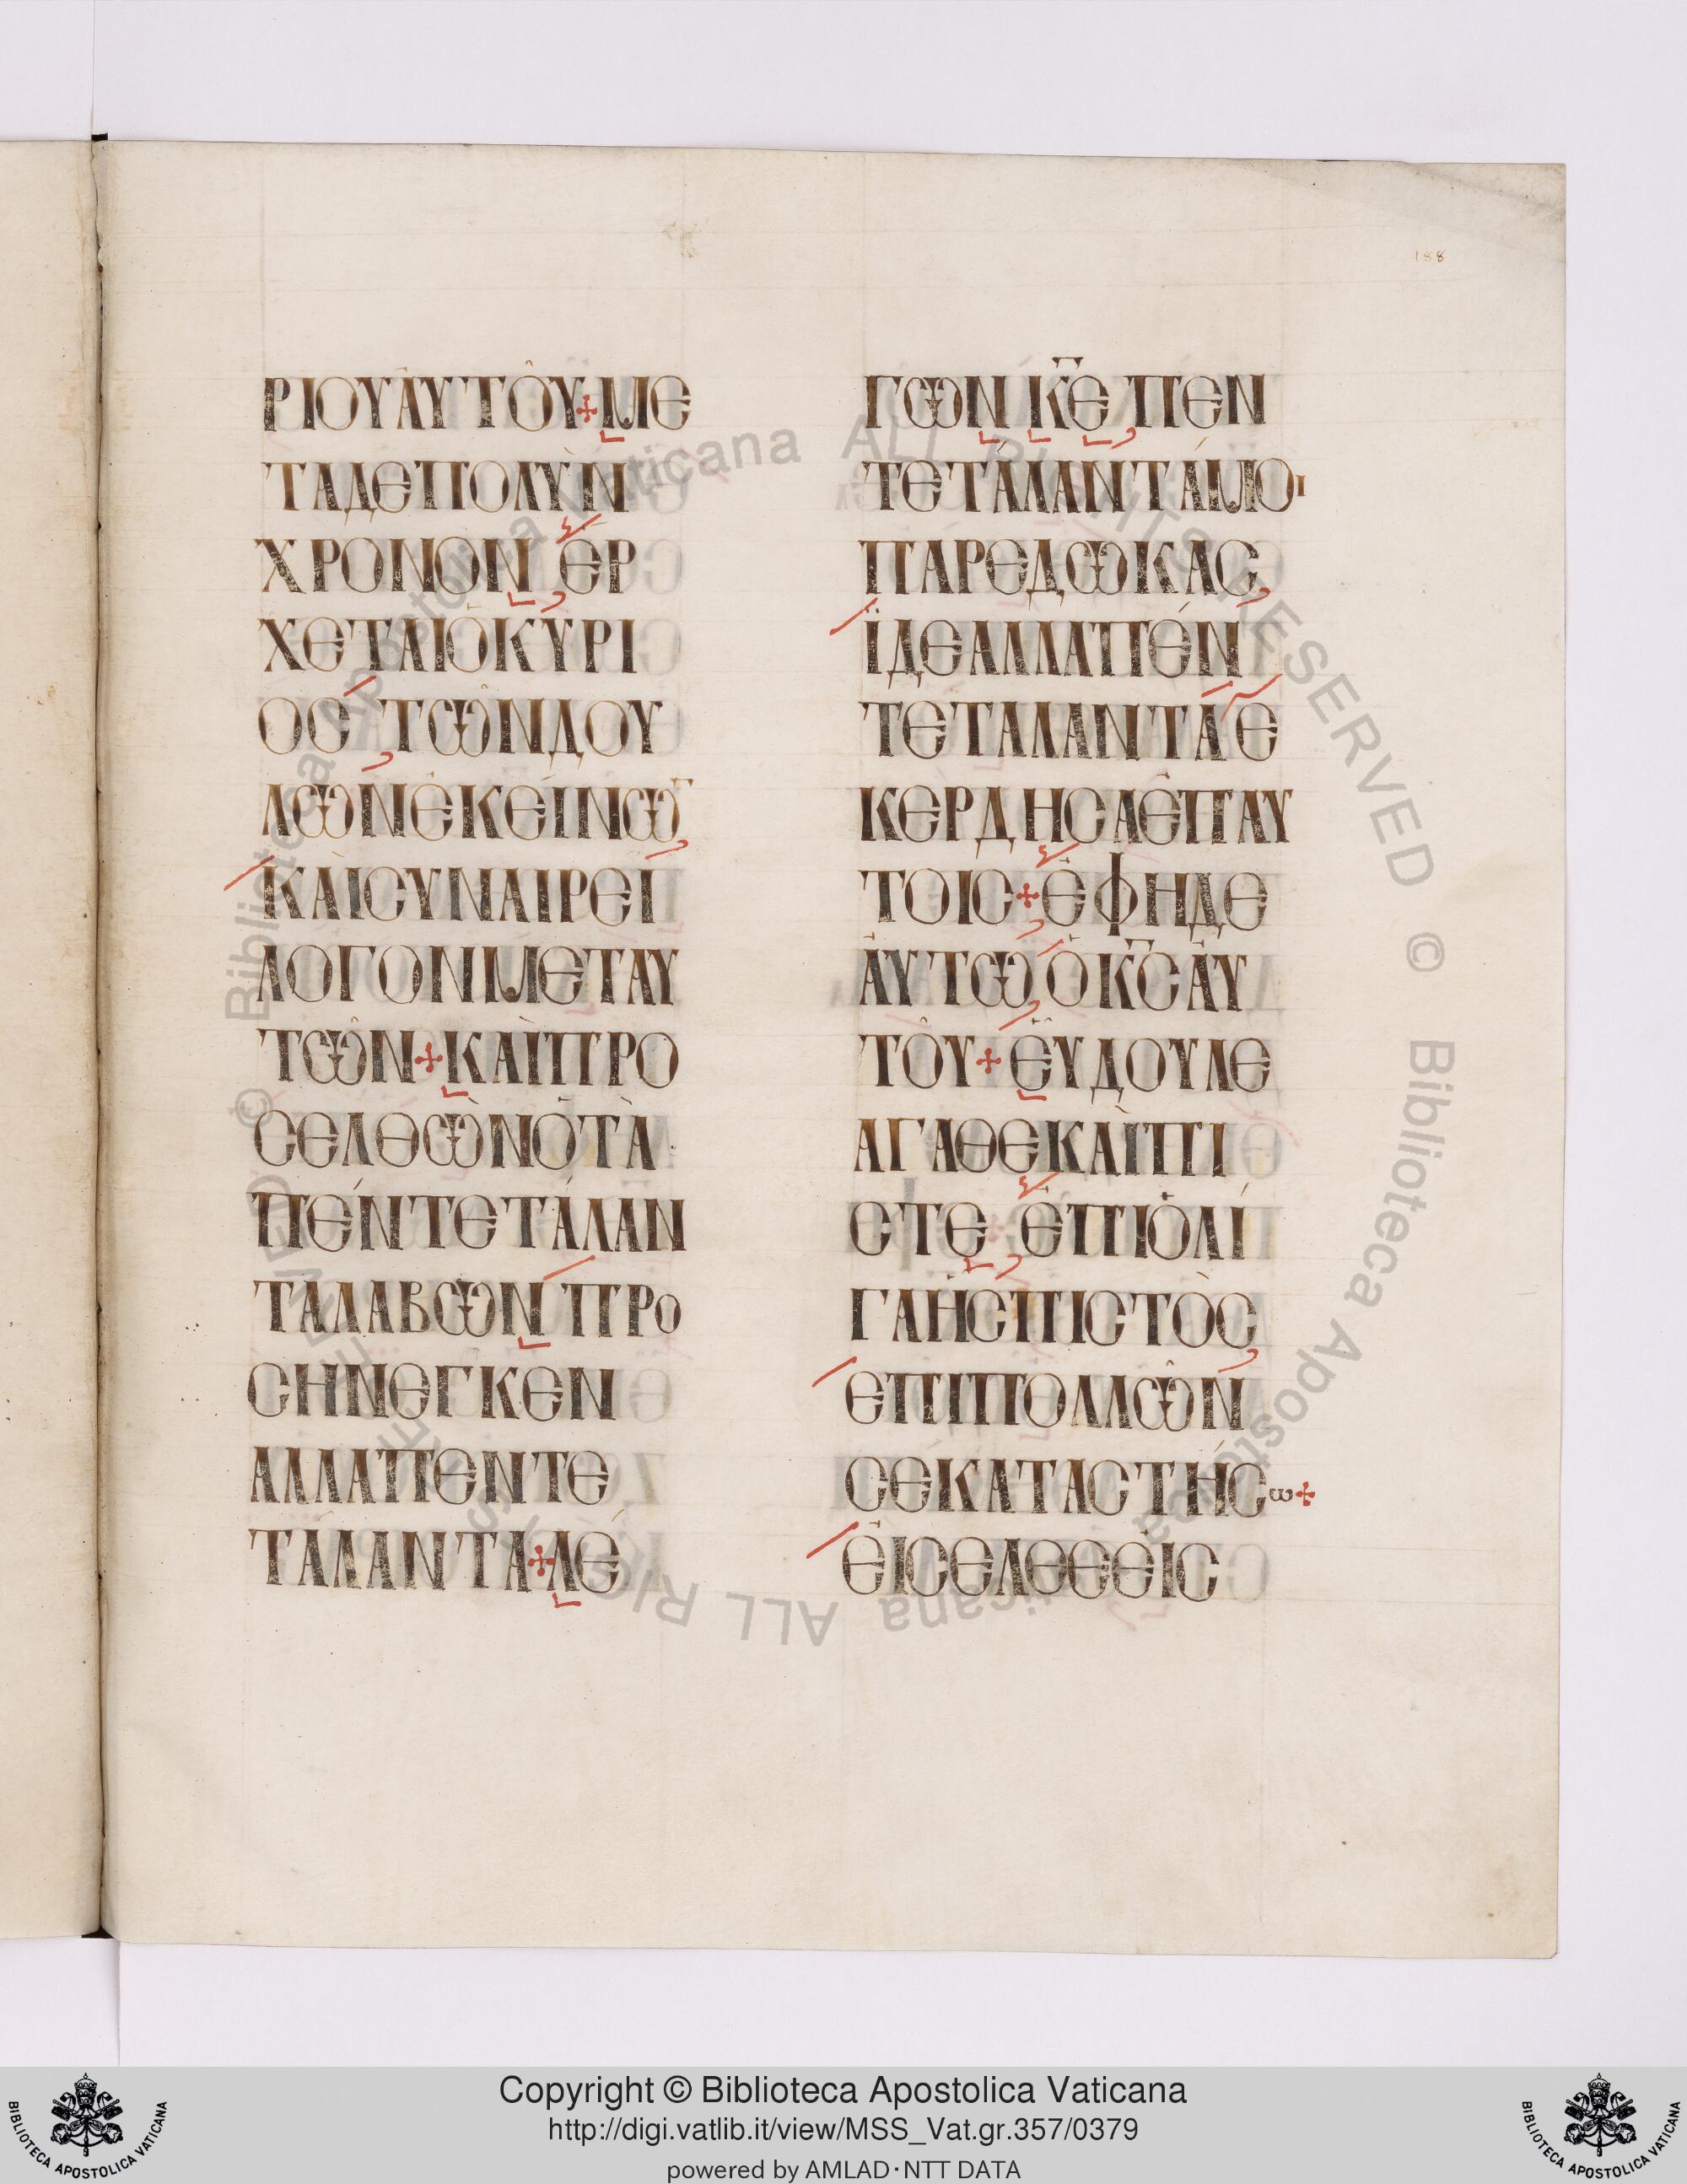 188
ΡΙΟΥΑΥΤΟΥ+ΜΕ
ΤΑΔΕΠΟΛΥΝ
ΧΡΟΝΟΝ ΕΡ
ΧΕΤΑΙΟΚΥΡΙ
ΟϹ ΤΩΝΔΟΥ
ΛΩΝΕΚΕΙΝΩ̅
ΚΑΙϹΥΝΑΙΡΕΙ
ΛΟΓΟΝΜΕΤΑΥ
ΤΩΝ+ΚΑΙΠΡΟ
ϹΕΛΘΩΝΟΤΑ
ΠΕΝΤΕΤΑΛΑΝ
ΤΑΛΑΒΩΝ ΠΡΟ
ϹΗΝΕΓΚΕΝ
ΑΛΛΑΠΕΝΤΕ
ΤΑΛΑΝΤΑ+ΛΕ
ΓΩΝ Κ̅Ε̅ ΠΕΝ
ΤΕΤΑΛΑΝΤΑΜΟΙ
ΠΑΡΕΔΩΚΑϹ
ΪΔΕΑΛΛΑΠΕΝ
ΤΕΤΑΛΑΝΤΑ Ε
ΚΕΡΔΗϹΑΕΠΑΥ
ΤΟΙϹ+ΕΦΗΔΕ
ΑΥΤΩ ΟΚ̅Ϲ̅ΑΥ
ΤΟΥ+ΕΥΔΟΥΛΕ
ΑΓΑΘΕΚΑΙΠΙ
ϹΤΕ ΕΠΙΟΛΙ
ΓΑΗϹΠΙϹΤΟϹ
ΕΠΙΠΟΛΛΩΝ
ϹΕΚΑΤΑϹΤΗϹω+
ΕΙϹΕΛΘΕΕΙϹ
© Biblioteca Apostolica Vaticana ALL RIGHTS RESERVED © Biblioteca Apostolica Vaticana ALL RIGHTS RESERVED
Copyright © Biblioteca Apostolica Vaticana
http://digi.vatlib.it/view/MSS_Vat.gr.357/0379
powered by AMLAD·NTT DATA
BIBLIOTECA APOSTOLICA VATICANA
BIBLIOTECA APOSTOLICA VATICANA